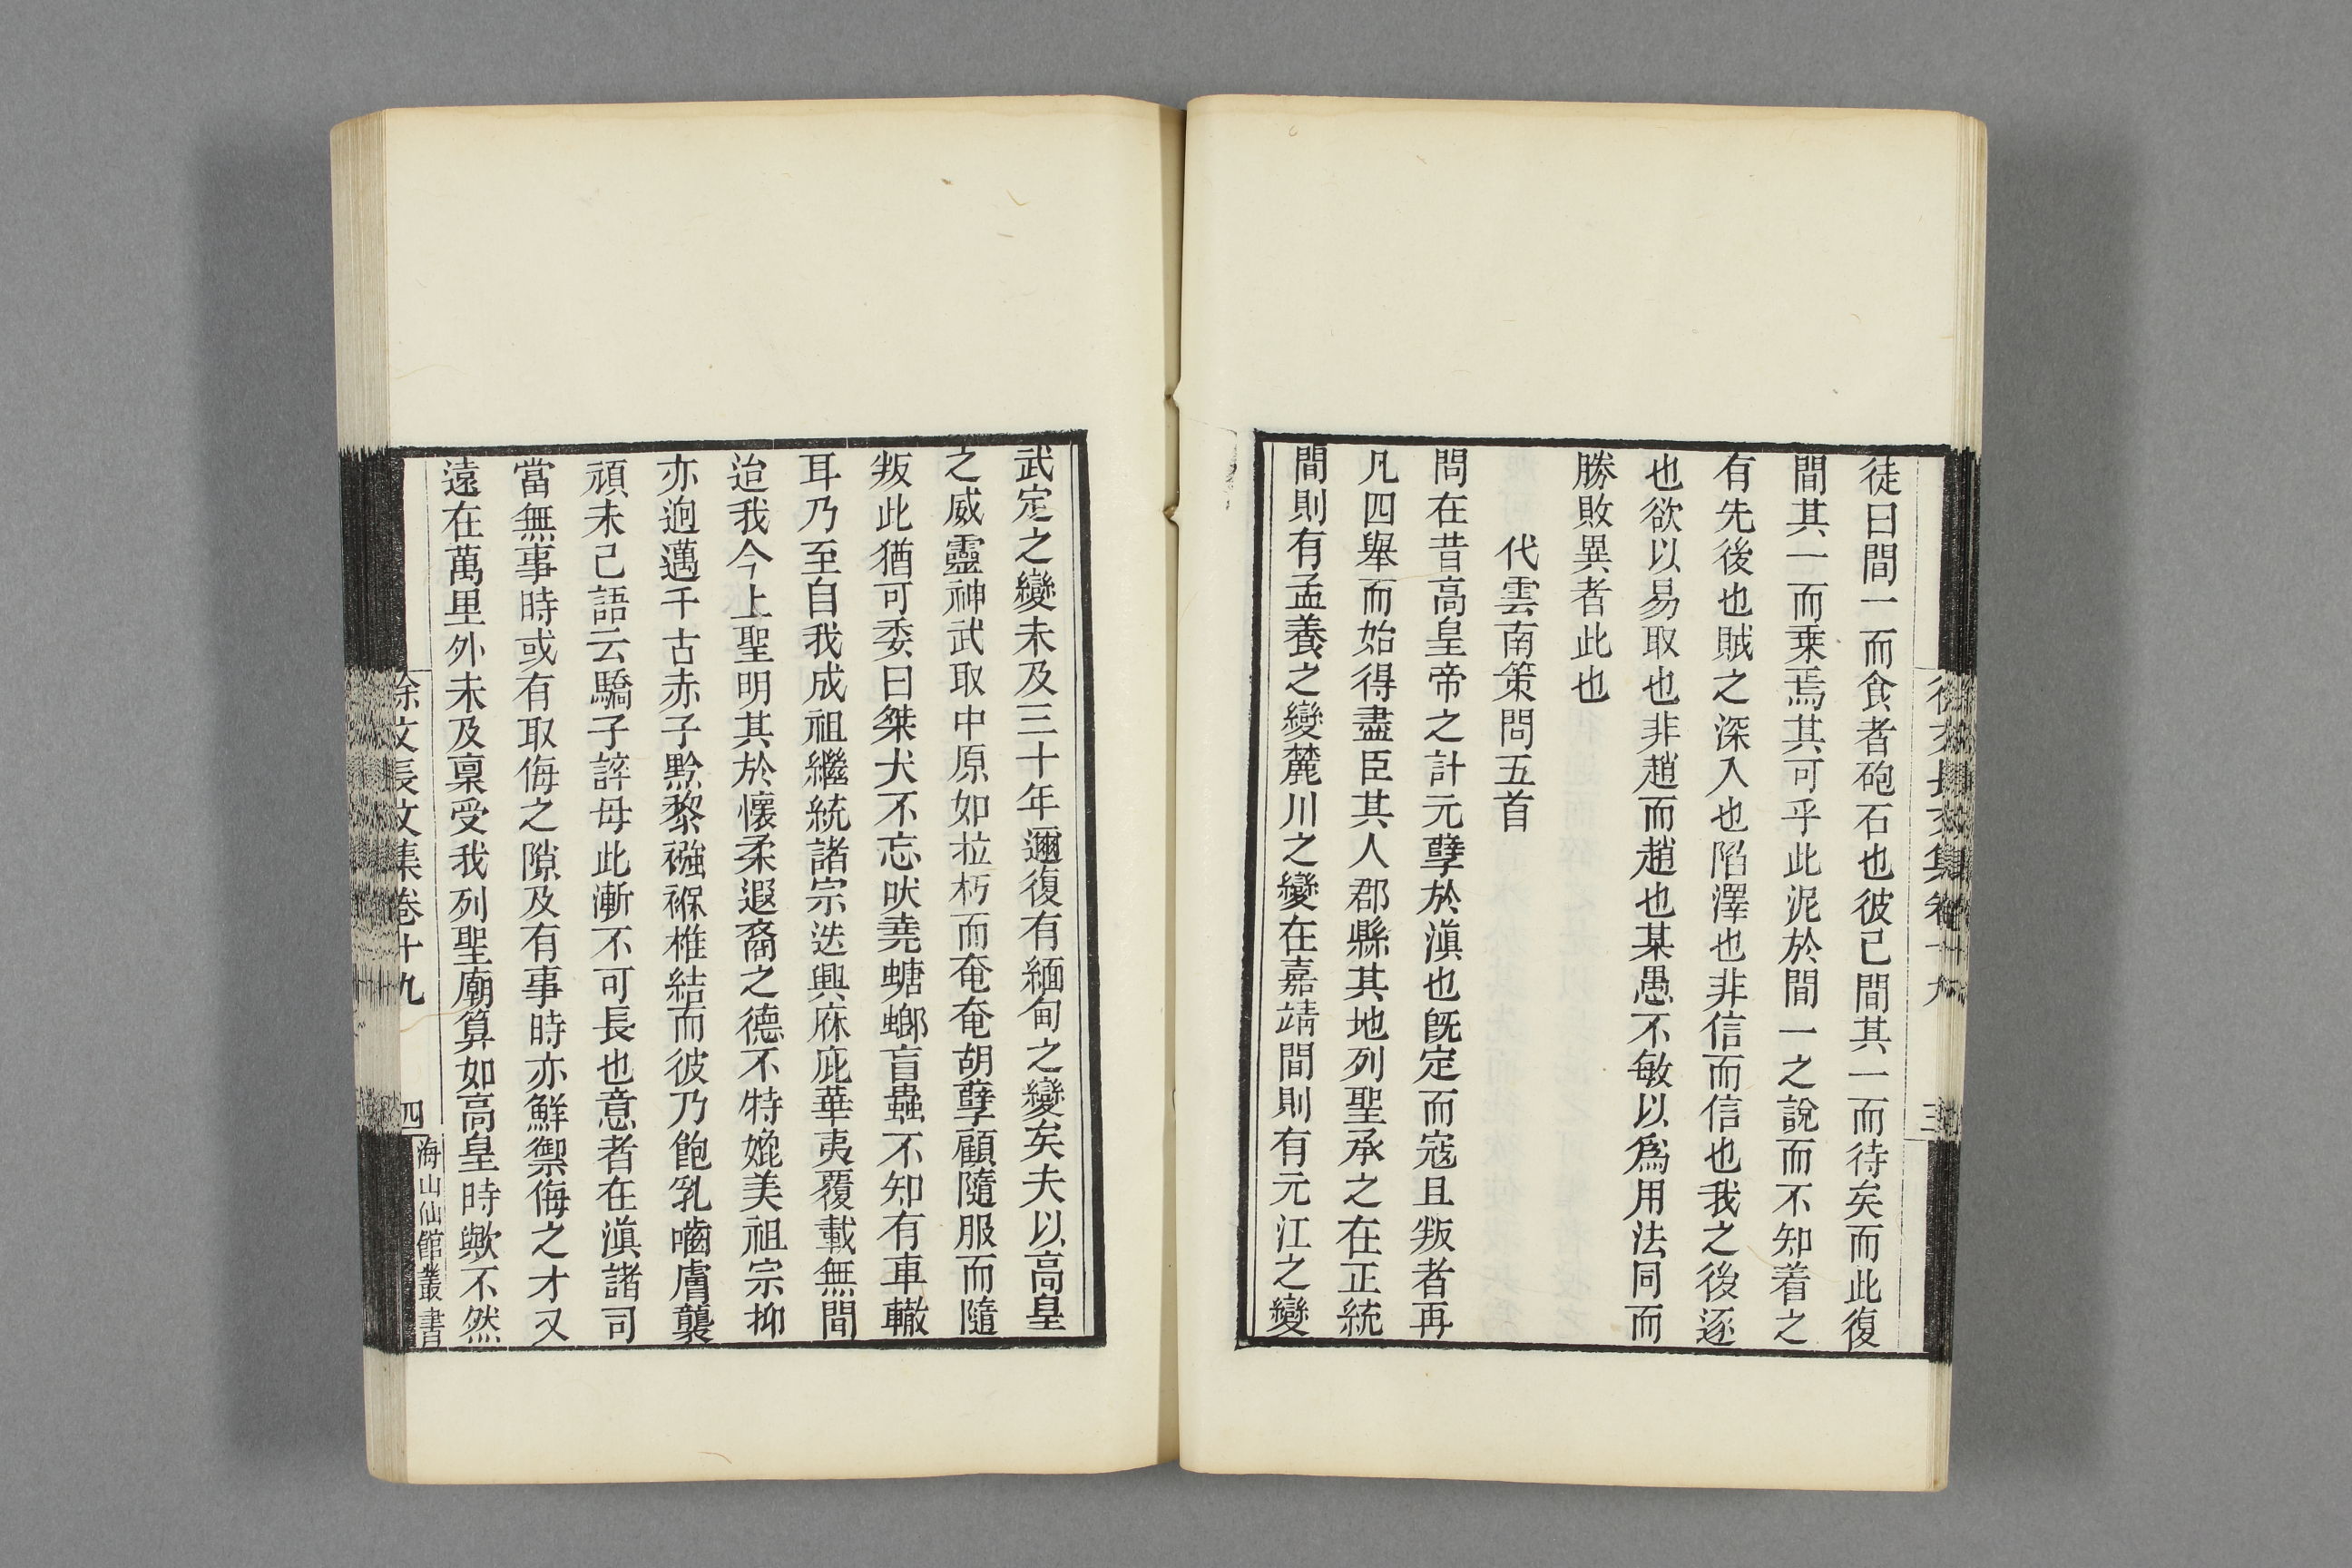 徒曰間一而食者砲石也彼已間其一而待矣而此復
間其一而乗焉其可乎此泥於間一之說而不知着之
有先後也賊之深入也陷澤也非信而信也我之後逐
也欲以易取也非趙而趙也某愚不敏以爲用法同而
勝敗異者此也
代雲南策問五首
問在昔高皇帝之計元孽於滇也旣定而寇且叛者再
凡四舉而始得盡臣其人郡縣其地列聖承之在正統
間則有孟養之變麓川之變在嘉靖間則有元江之變
武定之變未及三十年邇復有緬甸之變矣夫以高皇
之威靈神武取中原如拉朽而奄奄胡孽顧隨服而隨
叛此猶可委曰桀犬不忘吠堯螗螂盲蟲不知有車轍
耳乃至自我成祖繼統諸宗迭興庥庇華夷覆載無間
迨我今上聖明其於懷柔遐裔之德不特媲美祖宗抑
亦逈邁千古赤子黔黎襁褓椎結而彼乃飽乳嚙膚襲
頑未已語云驕子誶母此漸不可長也意者在滇諸司
當無事時或有取侮之隙及有事時亦鮮禦侮之才又
遠在萬里外未及稟受我列聖廟算如高皇時歟不然
徐文長文集卷十九
四
海山仙館叢書